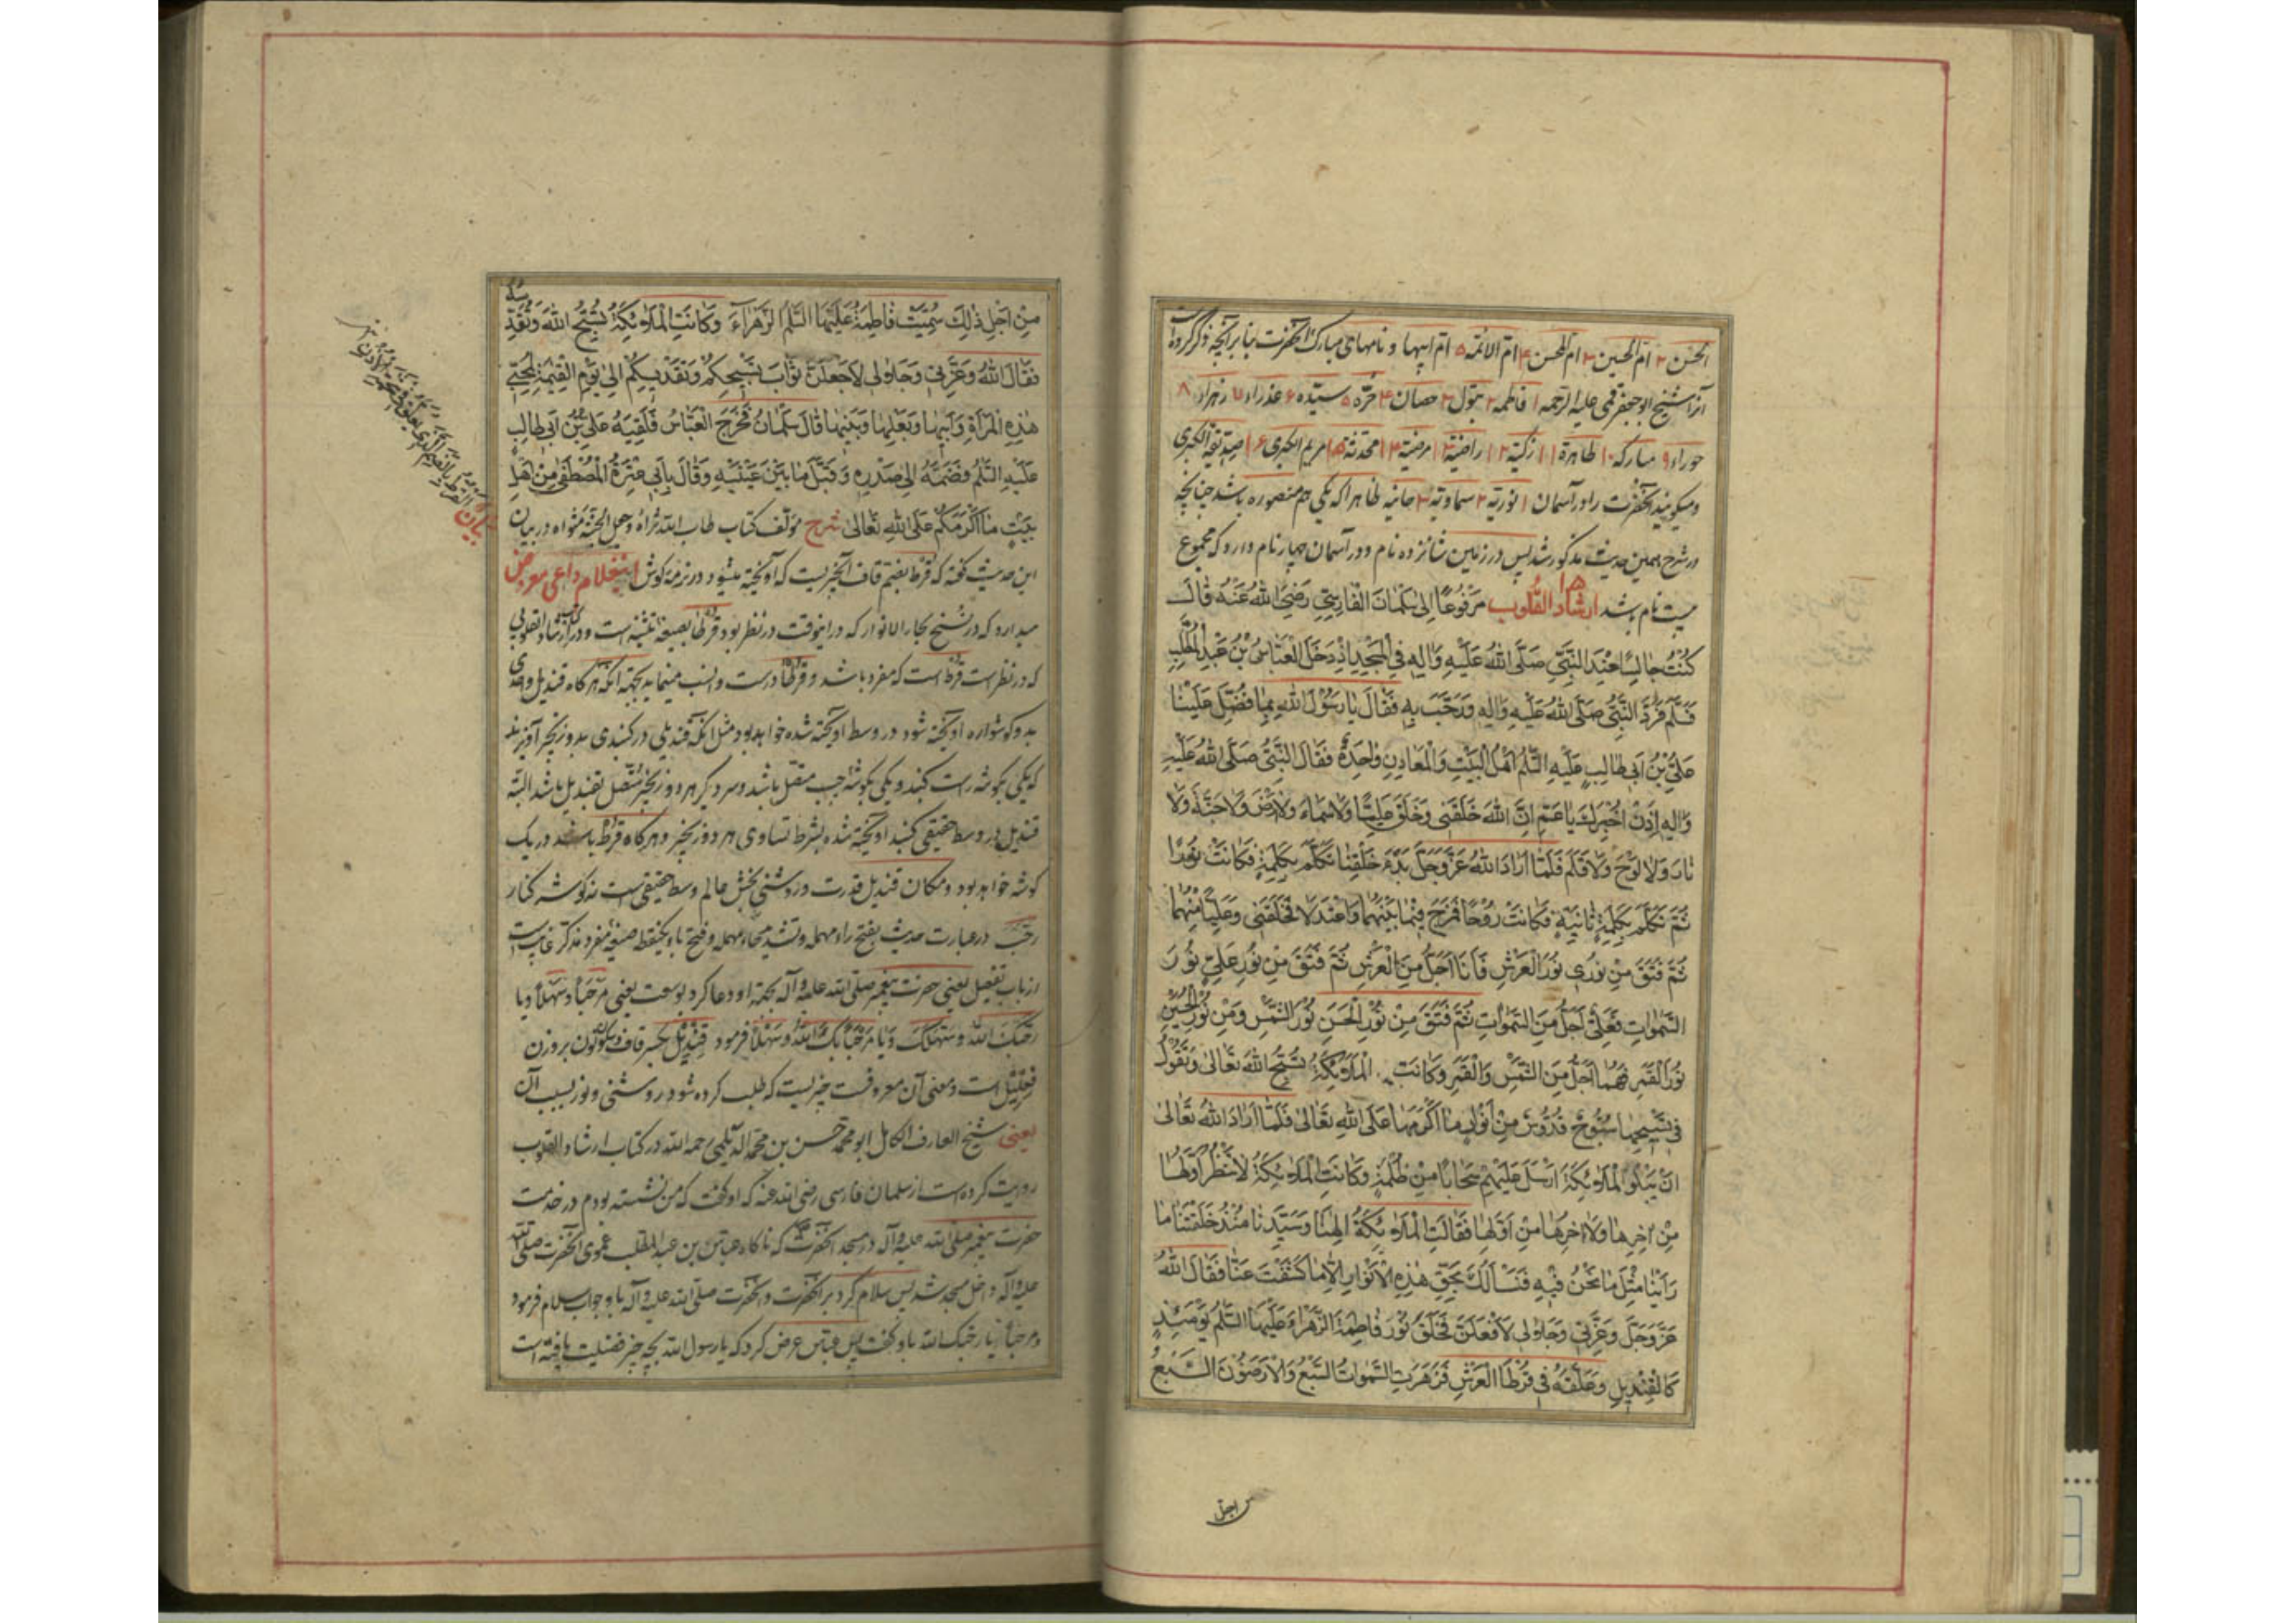 الحسن ۲ ام الحسین ۳ ام المحسن ۴ ام الائمه ۵ ام ابیها و نامهای مبارک آنحضرت بنا بر آنچه ذکر کرده است
آنرا شیخ ابو جعفر قمی علیه الرحمه ۱ فاطمه ۲ بتول ۳ حصان ۴ حرّه ۵ سیّده ۶ عذراء ۷ زهراء ۸
حوراء ۹ مبارکه ۱۰ طاهرة ۱۱ زکیّة ۱۲ راضیة ۱۳ مرضیّة ۱۴ محدّثة ۱۵ مریم الکبری ۱۶ صدّیقة الکبری
ومیکویند آنحضرت را در آسمان ۱ نوریّه ۲ سماویّه ۳ حانیه ظاهرا که یکی هم منصوره باشد چنانچه
در شرح همین حدیث مذکور شد پس در زمین شانزده نام و در آسمان چهار نام دارد که مجموع
بیست نام باشد ارشاد القلوب مَرْفُوعًا اِلٰی سَلْمَانَ الْفَارِسِیِّ رَضِیَ اللهُ عَنْهُ قَالَ
كُنْتُ جَالِسًا عِنْدَ النَّبِيِّ صَلَّی اللهُ عَلَیْهِ وَاٰلِهِ فِی الْمَسْجِدِ اِذْ دَخَلَ الْعَبَّاسُ بْنُ عَبْدِ الْمُطَّلِبِ
فَسَلَّمَ فَرَدَّ النَّبِيُّ صَلَّی اللهُ عَلَیْهِ وَاٰلِهِ وَرَحَّبَ بِهِ فَقَالَ یَا رَسُوْلَ اللهِ بِمَا فُضِّلَ عَلَیْنَا
عَلِيُّ بْنُ اَبِی طَالِبٍ عَلَیْهِ السَّلٰمُ اَهْلَ الْبَیْتِ وَالْمَعَادِنِ وَاحِدَةٌ فَقَالَ النَّبِيُّ صَلَّی اللهُ عَلَیْهِ
وَاٰلِهِ اِذَنْ اُخْبِرَكَ یَا عَمِّ اِنَّ اللهَ خَلَقَنِی وَخَلَقَ عَلِیًّا وَلَا سَمَاءَ وَلَا اَرْضَ وَلَا جَنَّةَ وَلَا
نَارَ وَلَا لَوْحَ وَلَا قَلَمَ فَلَمَّا اَرَادَ اللهُ عَزَّ وَجَلَّ بَدْءَ خَلْقِنَا تَكَلَّمَ بِكَلِمَةٍ فَكَانَتْ نُوْرًا
ثُمَّ تَكَلَّمَ بِكَلِمَةٍ ثَانِیَةٍ فَكَانَتْ رُوْحًا فَمَزَجَ فِیْمَا بَیْنَهُمَا وَاعْتَدَلَا فَخَلَقَنِی وَعَلِیًّا مِنْهُمَا
ثُمَّ فَتَقَ مِنْ نُوْرِی نُوْرَ الْعَرْشِ فَاَنَا اَجَلُّ مِنَ الْعَرْشِ ثُمَّ فَتَقَ مِنْ نُوْرِ عَلِيٍّ نُوْرَ
السَّمٰوَاتِ فَعَلِيٌّ اَجَلُّ مِنَ السَّمٰوَاتِ ثُمَّ فَتَقَ مِنْ نُوْرِ الْحَسَنِ نُوْرَ الشَّمْسِ وَمِنْ نُوْرِ الْحُسَیْنِ
نُوْرَ الْقَمَرِ فَهُمَا اَجَلُّ مِنَ الشَّمْسِ وَالْقَمَرِ وَكَانَتِ الْمَلَاۤئِكَةُ تُسَبِّحُ اللهَ تَعَالٰی وَتَقُوْلُ
فِی تَسْبِیْحِهَا سُبُّوْحٌ قُدُّوْسٌ مِنْ اَنْوَارٍ مَا اَكْرَمَهَا عَلَی اللهِ تَعَالٰی فَلَمَّا اَرَادَ اللهُ تَعَالٰی
اَنْ یَبْلُوَ الْمَلَاۤئِكَةَ اَرْسَلَ عَلَیْهِمْ سَحَابًا مِنْ ظُلْمَةٍ وَكَانَتِ الْمَلَاۤئِكَةُ لَا تَنْظُرُ اَوَّلَهَا
مِنْ اٰخِرِهَا وَلَا اٰخِرَهَا مِنْ اَوَّلِهَا فَقَالَتِ الْمَلَاۤئِكَةُ اِلٰهَنَا وَسَیِّدَنَا مُنْذُ خَلَقْتَنَا مَا
رَاَیْنَا مِثْلَ مَا نَحْنُ فِیْهِ فَنَسْاَلُكَ بِحَقِّ هٰذِهِ الْاَنْوَارِ اِلَّا مَا كَشَفْتَ عَنَّا فَقَالَ اللهُ
عَزَّ وَجَلَّ وَعِزَّتِی وَجَلَالِی لَاَفْعَلَنَّ فَخَلَقَ نُوْرَ فَاطِمَةَ الزَّهْرَاءِ عَلَیْهَا السَّلٰمُ یَوْمَئِذٍ
كَالْقِنْدِیْلِ وَعَلَّقَهُ فِی قُرْطَا الْعَرْشِ فَزَهَرَتِ السَّمٰوَاتُ السَّبْعُ وَالْاَرَضُوْنَ السَّبْعُ
من اجل
مِنْ اَجْلِ ذٰلِكَ سُمِّیَتْ فَاطِمَةُ عَلَیْهَا السَّلٰمُ الزَّهْرَاءَ وَكَانَتِ الْمَلَاۤئِكَةُ تُسَبِّحُ اللهَ وَتُقَدِّسُهُ
فَقَالَ اللهُ وَعِزَّتِی وَجَلَالِی لَاَجْعَلَنَّ ثَوَابَ تَسْبِیْحِكُمْ وَتَقْدِیْسِكُمْ اِلٰی یَوْمِ الْقِیٰمَةِ لِمُحِبِّی
هٰذِهِ الْمَرْاَةِ وَاَبِیْهَا وَبَعْلِهَا وَبَنِیْهَا قَالَ سَلْمَانُ فَخَرَجَ الْعَبَّاسُ فَلَقِیَهُ عَلِيُّ بْنُ اَبِی طَالِبٍ
عَلَیْهِ السَّلٰمُ فَضَمَّهُ اِلٰی صَدْرِهِ وَقَبَّلَ مَا بَیْنَ عَیْنَیْهِ وَقَالَ بِاَبِی عِتْرَةُ الْمُصْطَفٰی مِنْ اَهْلِ
بَیْتٍ مَا اَكْرَمَكُمْ عَلَی اللهِ تَعَالٰی شرح مؤلّف کتاب طاب الله ثراه وجعل الجنّة مثواه در بیان
این حدیث کفته که قرط بضم قاف آنچیزیست که آویخته میشود در نرمهٔ کوش اینغلام داعی معروض
میدارد که در نسخ بحار الانوار که در اینوقت در نظر بود قرطا بصیغهٔ تثنیه است و در ارشاد القلوبی
که در نظر است قرط است که مفرد باشد و قرطا درست و انسب مینماید بجهة آنکه هر کاه قندیل واحدی
بدو کوشواره آویخته شود در وسط آویخته شده خواهد بود مثل آنکه قندیلی در کنبدی بدو زنجیر آویزند
که یکی بکوشهٔ راست کنبد و یکی بکوشهٔ چپ متصل باشد و سر دیکر هر دو زنجیر متصل بقندیل باشد البته
قندیل در وسط حقیقی کنبد آویخته شده بشرط تساوی هر دو زنجیر و هر کاه قرط باشد در یک
کوشه خواهد بود و مکان قندیل قدرت و روشنی بخش عالم وسط حقیقی است نه کوشه کنار
رحّب در عبارت حدیث بفتح راء مهمله و تشدید حاء مهمله و فتح باء یکنقطه صیغهٔ مفرد مذکّر غایب است
از باب تفعیل یعنی حضرت پیغمبر صلی الله علیه وآله بجهة او دعا کرد بوسعت یعنی مرحبا و سهلا و یا
رحّبک الله و سهّلک و یا مرحبا بک الله و سهلا فرمود قندیل بکسر قاف و سکون نون بر وزن
فعلیل است و معنی آن معروفست چیزیست که طلب کرده شود روشنی و نور بسبب آن
یعنی شیخ العارف الکامل ابو محمّد حسن بن محمّد الدیلمی رحمه الله در کتاب ارشاد القلوب
روایت کرده است از سلمان فارسی رضی الله عنه که او کفت که من نشسته بودم در خدمت
حضرت پیغمبر صلی الله علیه وآله در مسجد آنحضرت که ناکاه عباس بن عبد المطلب عموی آنحضرت صلی الله
علیه وآله داخل مسجد شد پس سلام کرد بر آنحضرت و آنحضرت صلی الله علیه وآله باو جواب سلام فرمود
و مرحبا یا رحّبک الله باو کفت پس عباس عرض کرد که یا رسول الله بچه چیز فضیلت یافته است
بیان